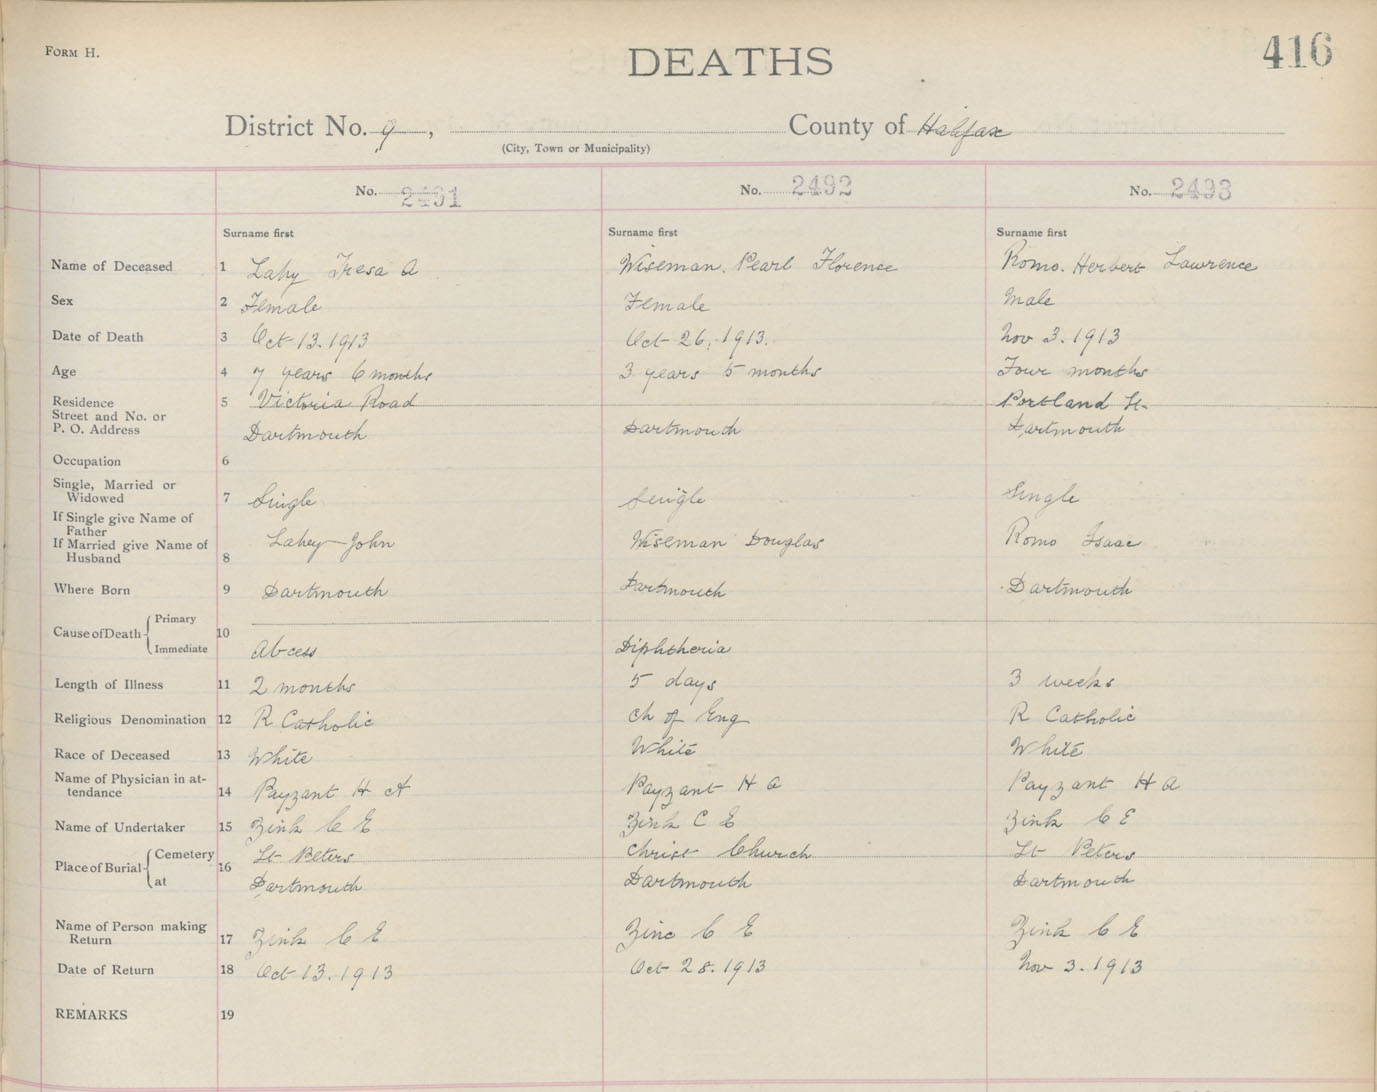 FORM H.
DEATHS
416
District No. 9, County of Halifax
(City, Town or Municipality)
No. 2491 No. 2492 No. 2493
Surname first Surname first Surname first
Name of Deceased 1 Lahy Tresa A Wiseman. Pearl Florence Romo. Herbert Lawrence
Sex 2 Female Female Male
Date of Death 3 Oct 13. 1913 Oct 26. 1913. Nov 3. 1913
Age 4 7 years 6 months 3 years 5 months Four months
Residence 5 Victoria Road Portland St.
Street and No. or
P. O. Address Dartmouth Dartmouth Dartmouth
Occupation 6
Single, Married or
Widowed 7 Single Single Single
If Single give Name of
Father
If Married give Name of Lahey John Wiseman Douglas Romo Isaac
Husband 8
Where Born 9 Dartmouth Dartmouth Dartmouth
Primary
Cause of Death 10
Immediate Abcess Diphtheria
Length of Illness 11 2 months 5 days 3 weeks
Religious Denomination 12 R Catholic Ch of Eng R Catholic
Race of Deceased 13 White White White
Name of Physician in at-
tendance 14 Payzant H A Payzant H A Payzant H A
Name of Undertaker 15 Zink C E Zink C E Zink C E
Cemetery St Peters Christ Church St Peters
Place of Burial 16
at Dartmouth Dartmouth Dartmouth
Name of Person making
Return 17 Zink C E Zinc C E Zink C E
Date of Return 18 Oct 13. 1913 Oct 28. 1913 Nov 3. 1913
REMARKS 19